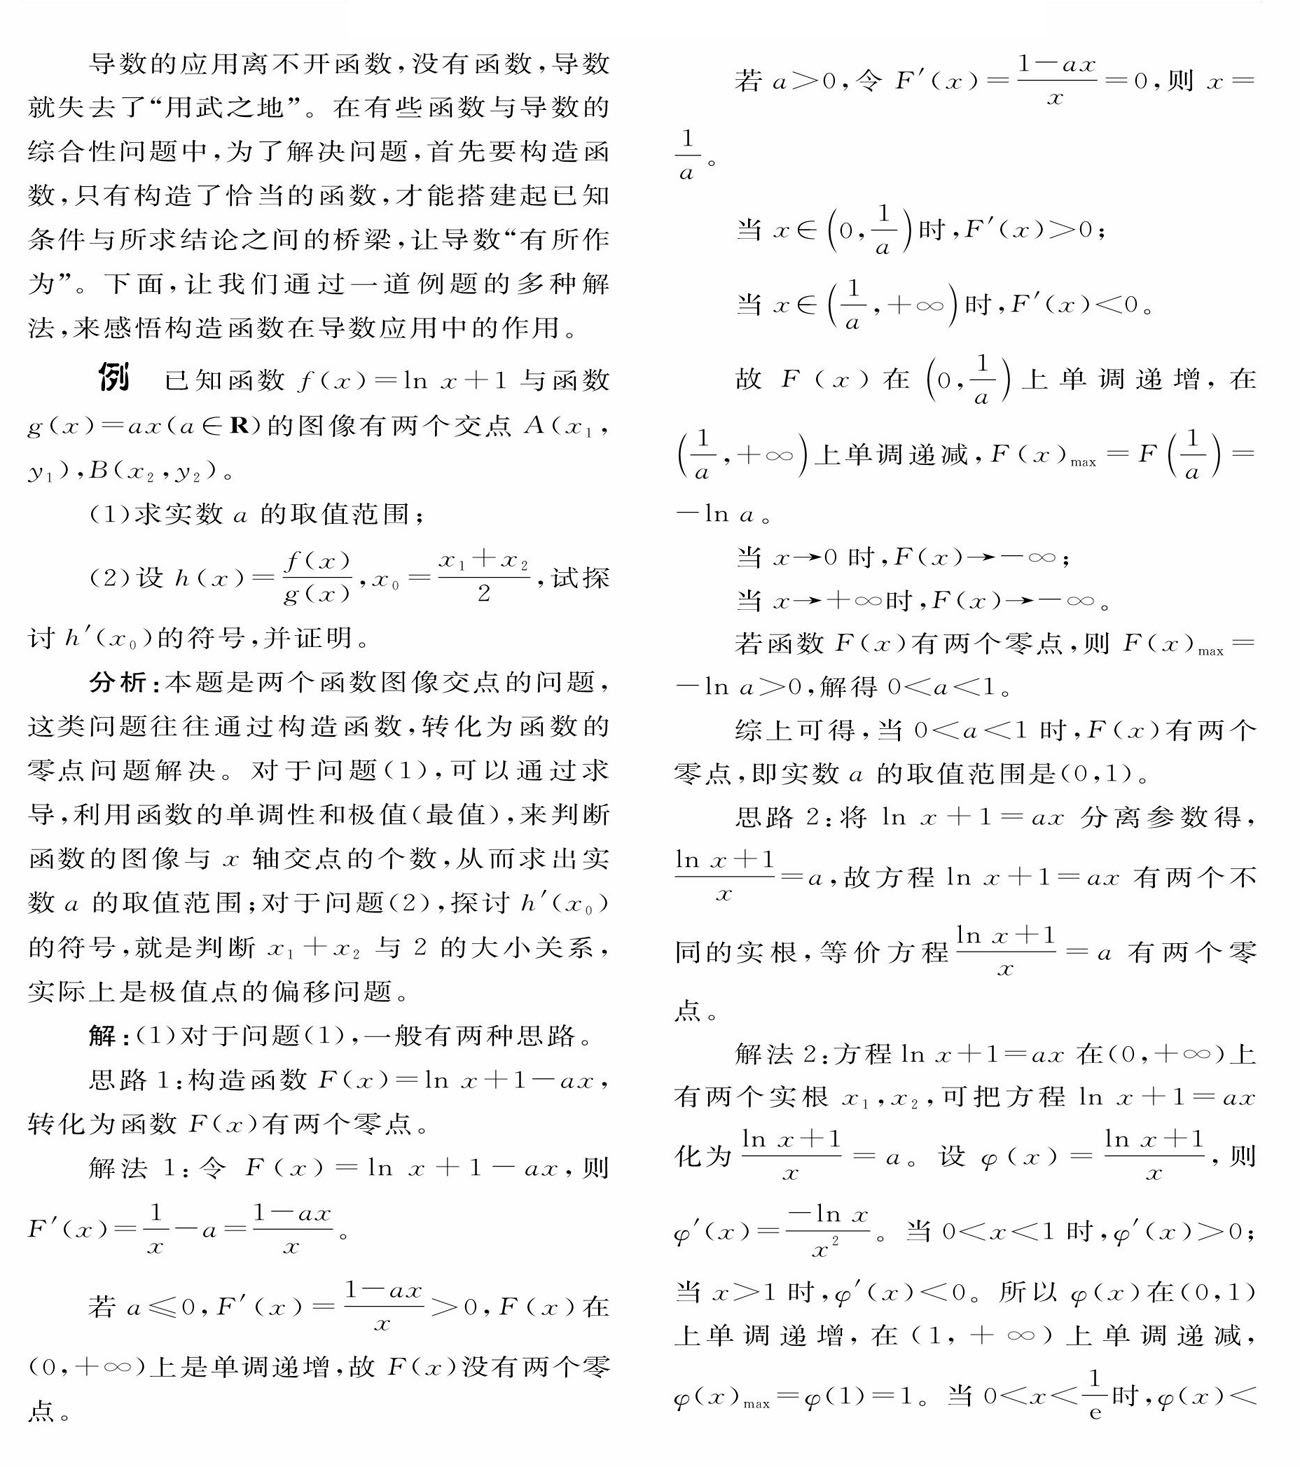 导数的应用离不开函数,没有函数,导数
就失去了“用武之地”。在有些函数与导数的
综合性问题中,为了解决问题,首先要构造函
数,只有构造了恰当的函数,才能搭建起已知
条件与所求结论之间的桥梁,让导数“有所作
为”。下面,让我们通过一道例题的多种解
法,来感悟构造函数在导数应用中的作用。
例 已知函数 f(x)=ln x+1 与函数
g(x)=ax(a∈R)的图像有两个交点 A(x₁,
y₁),B(x₂,y₂)。
(1)求实数 a 的取值范围;
(2)设 h(x)=f(x)/g(x),x₀=(x₁+x₂)/2,试探
讨 h′(x₀)的符号,并证明。
分析:本题是两个函数图像交点的问题,
这类问题往往通过构造函数,转化为函数的
零点问题解决。对于问题(1),可以通过求
导,利用函数的单调性和极值(最值),来判断
函数的图像与 x 轴交点的个数,从而求出实
数 a 的取值范围;对于问题(2),探讨 h′(x₀)
的符号,就是判断 x₁+x₂ 与 2 的大小关系,
实际上是极值点的偏移问题。
解:(1)对于问题(1),一般有两种思路。
思路 1:构造函数 F(x)=ln x+1-ax,
转化为函数 F(x)有两个零点。
解法 1:令 F(x)=ln x+1-ax,则
F′(x)=1/x-a=(1-ax)/x。
若 a≤0,F′(x)=(1-ax)/x>0,F(x)在
(0,+∞)上是单调递增,故 F(x)没有两个零
点。
若 a>0,令 F′(x)=(1-ax)/x=0,则 x=
1/a。
当 x∈(0,1/a)时,F′(x)>0;
当 x∈(1/a,+∞)时,F′(x)<0。
故 F(x)在(0,1/a)上单调递增,在
(1/a,+∞)上单调递减,F(x)max=F(1/a)=
-ln a。
当 x→0 时,F(x)→-∞;
当 x→+∞时,F(x)→-∞。
若函数 F(x)有两个零点,则 F(x)max=
-ln a>0,解得 0<a<1。
综上可得,当 0<a<1 时,F(x)有两个
零点,即实数 a 的取值范围是(0,1)。
思路 2:将 ln x+1=ax 分离参数得,
(ln x+1)/x=a,故方程 ln x+1=ax 有两个不
同的实根,等价方程(ln x+1)/x=a 有两个零
点。
解法 2:方程 ln x+1=ax 在(0,+∞)上
有两个实根 x₁,x₂,可把方程 ln x+1=ax
化为(ln x+1)/x=a。设 φ(x)=(ln x+1)/x,则
φ′(x)=(-ln x)/x²。当 0<x<1 时,φ′(x)>0;
当 x>1 时,φ′(x)<0。所以 φ(x)在(0,1)
上单调递增,在(1,+∞)上单调递减,
φ(x)max=φ(1)=1。当 0<x<1/e时,φ(x)<